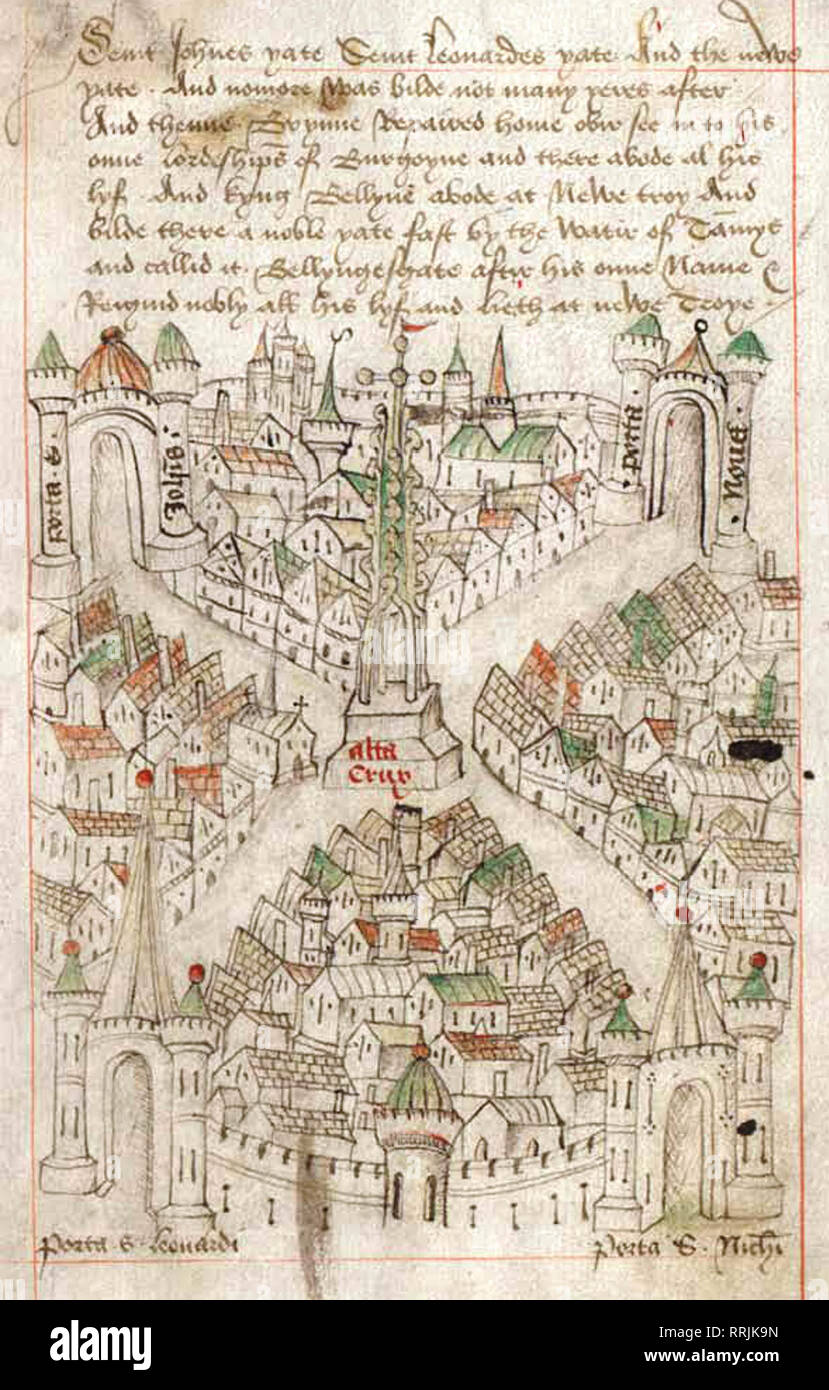 Seint Johnes yate Seint Leonardes yate And the newe
yate . And nomore was bilde not many yeres after
And thenne Brynne Repaired home ovir see in to his
onne lordeships of Burgoyne and there abode al his
lyf . And kyng Bellyne abode at Newe troy And
bilde there a noble yate fast by the Watir of Tamys
and callid it Bellyngesgate aftir his onne Name &
Reigned nobly all his lyf and lieth at newe Troye .
Porta S.
Johis.
Porta.
Nova.
alta
Crux
alamy
Porta . S . Leonardi
Porta S . Nichi
alamy
Image ID: RRJK9N
www.alamy.com